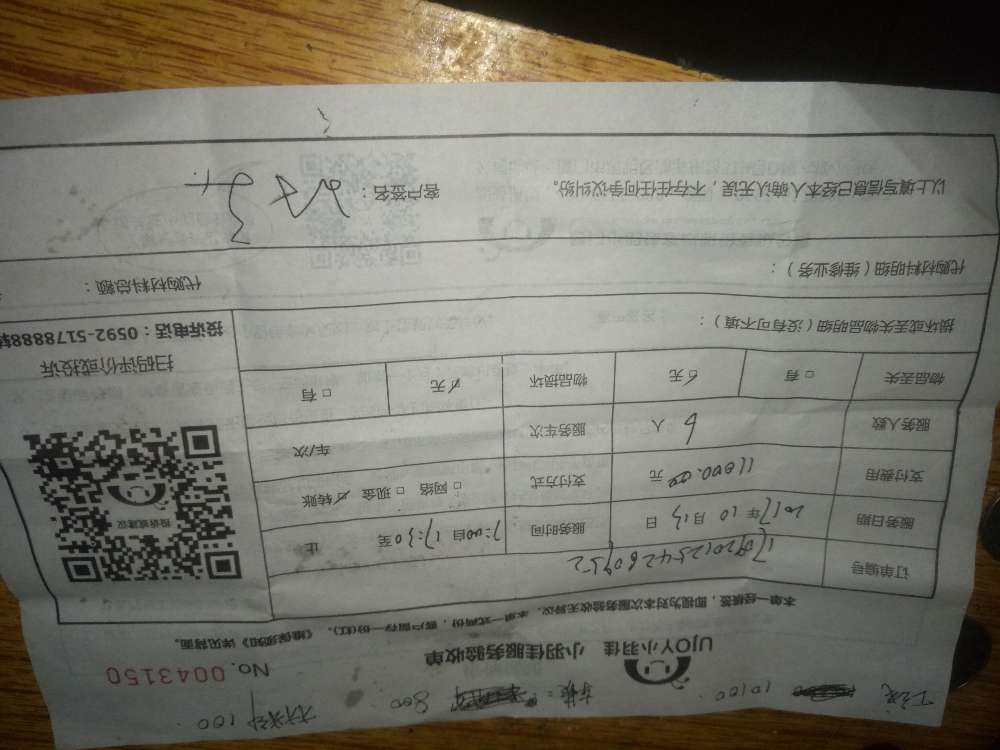 10100 800 100
UJOY小羽佳 小羽佳服务验收单 No. 0043150
本单一经核签，即视为对本次服务验收无异议。本单一式两份，客户留存一份(红)。《维保须知》详见背面。
订单编号
服务日期 2017年10月13日 服务时间 7:00自17:30至 止
支付费用 11000.00元 支付方式 □网络 □现金 ☑转账
服务人数 6人 服务车次 车/次
物品丢失 □有 ☑无 物品损坏 ☑无 □有
投诉或建议
扫码评价或投诉
投诉电话：0592-5178888转
损坏或丢失物品明细（没有可不填）：
代购材料明细（维修业务）： 代购材料总额：
以上填写信息已经本人确认无误，不存在任何争议纠纷。 客户签名：